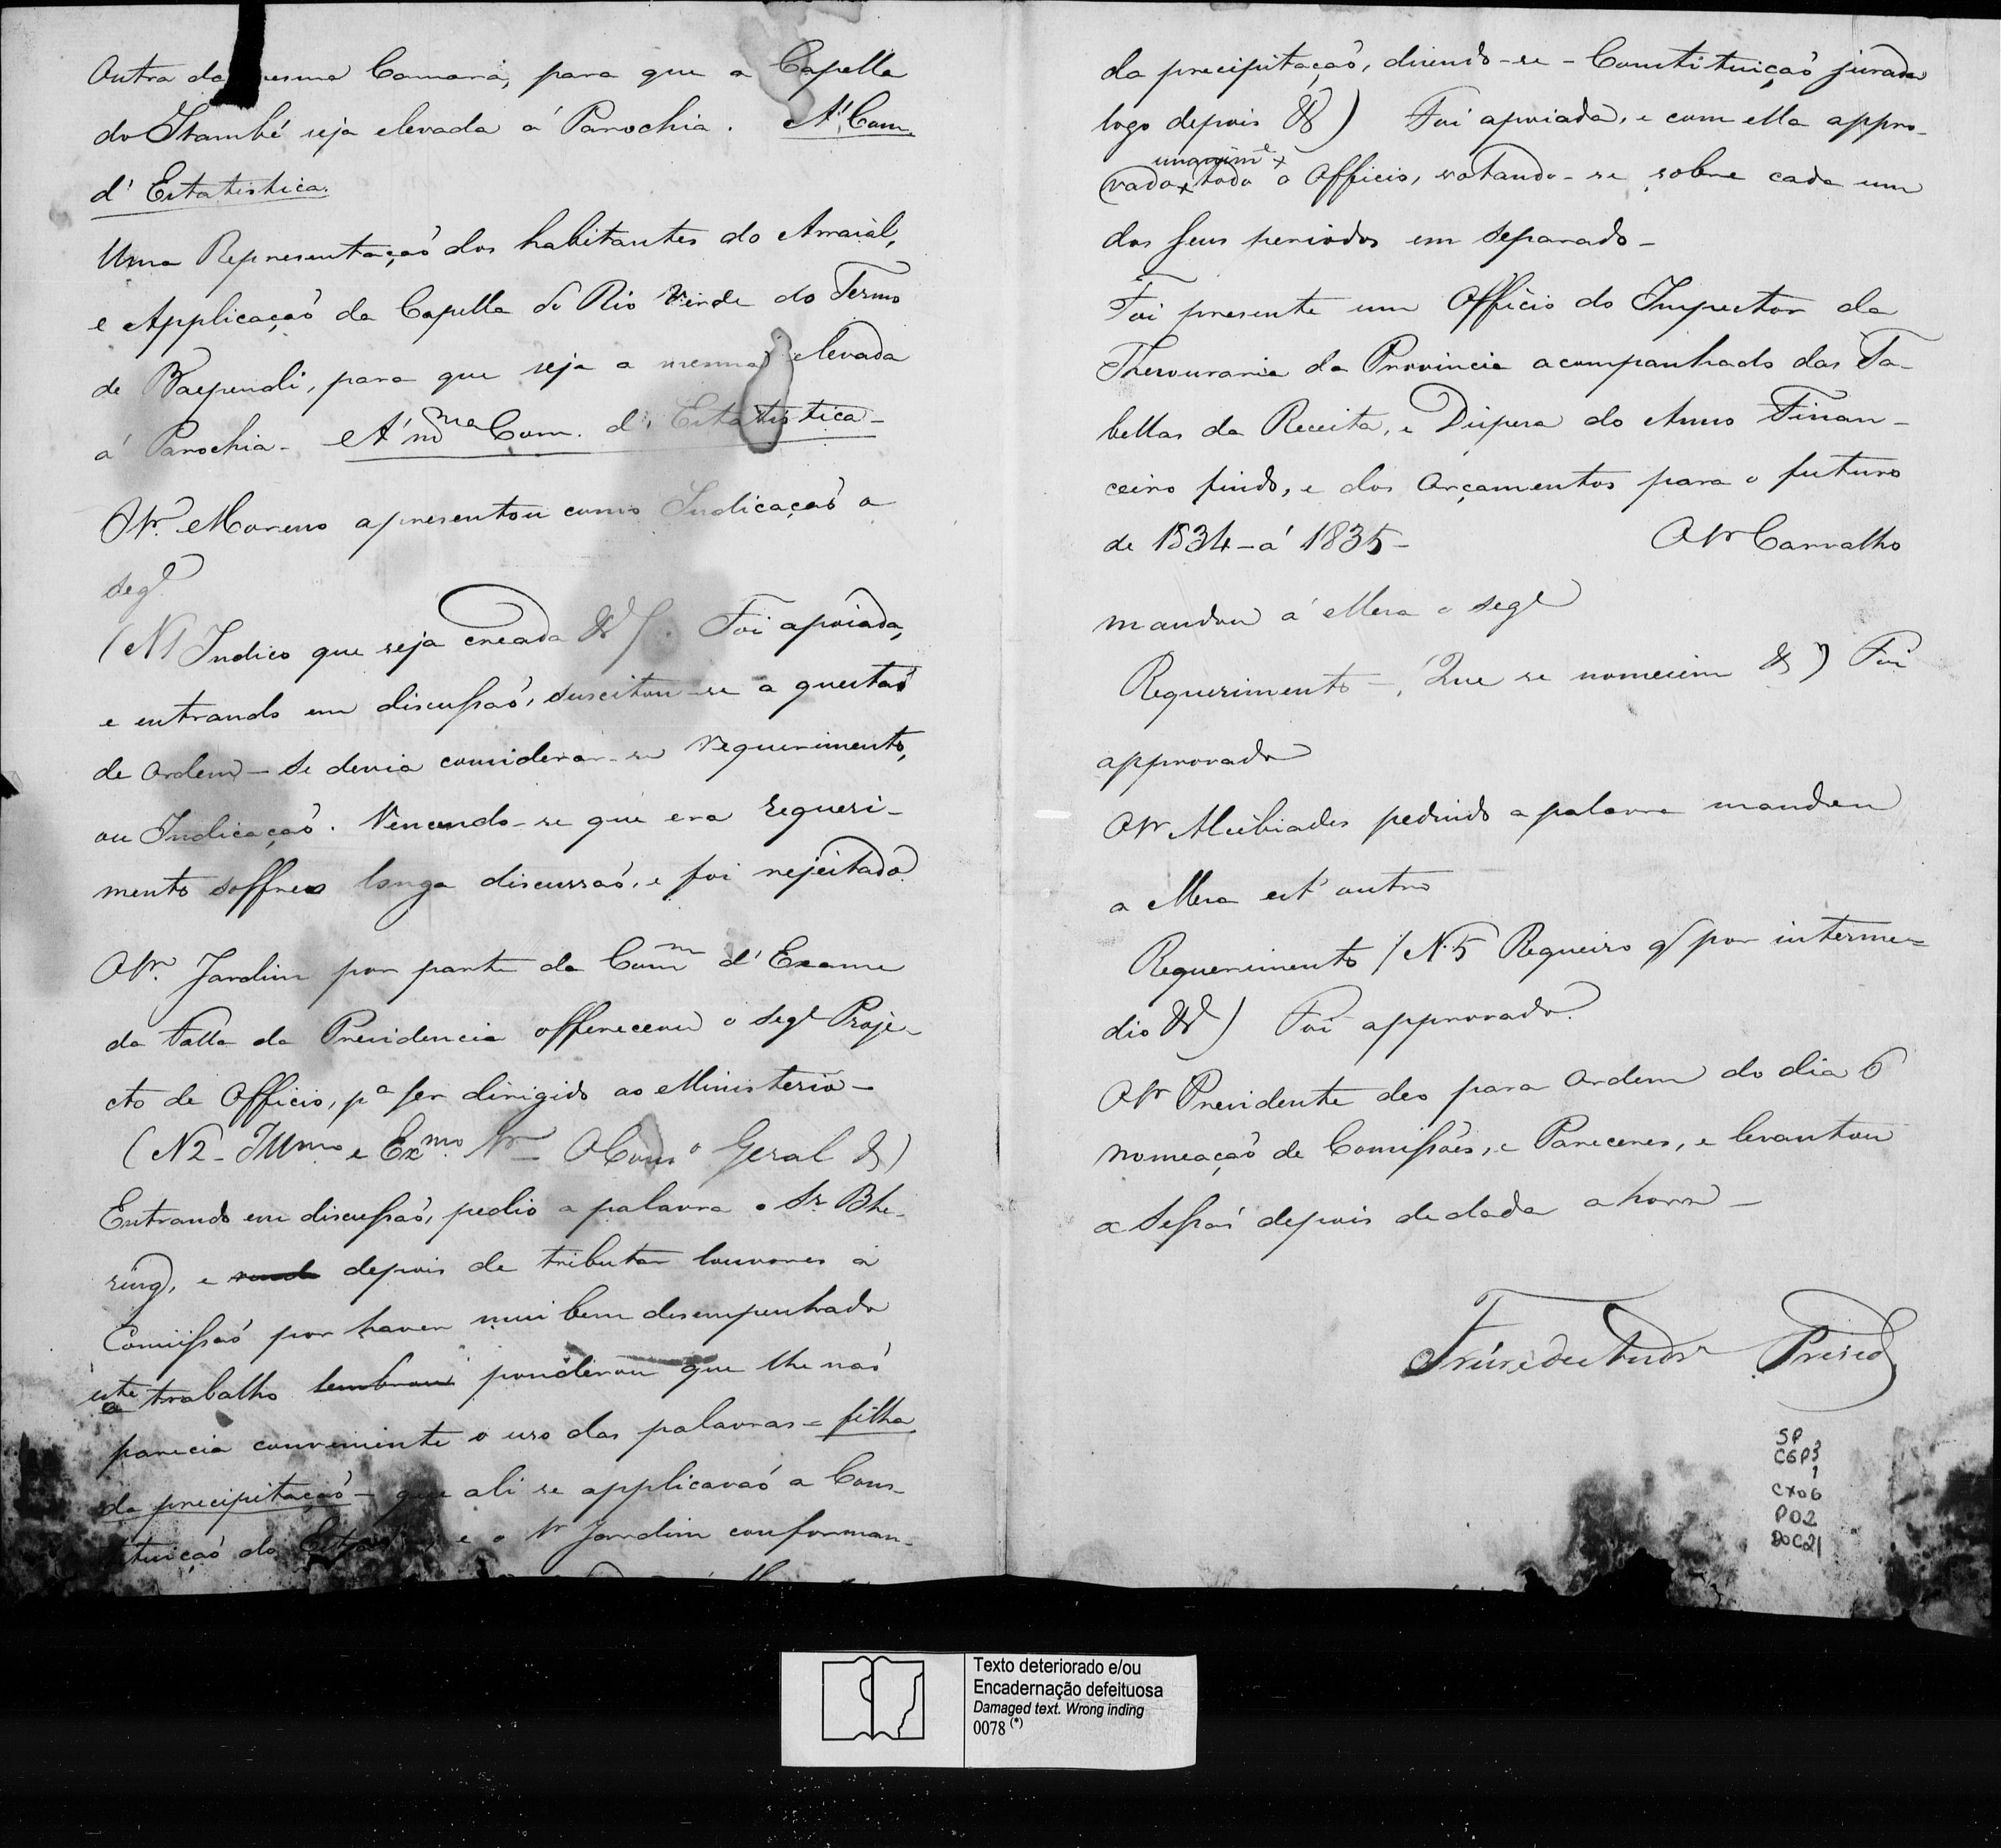 Outra da mesma Camara, para que a Capella
do Itambé seja elevada á Parochia. A' Com.
d' Estatistica.
Uma Representaçaõ dos habitantes do Arraial,
e Applicaçaõ da Capella do Rio Verde do Termo
de Baependi, para que seja a mesma elevada
á Parochia - A' mma Com. d' Estatistica -
O Sr. Moreno apresentou como Indicaçaõ a
sege
(N1 Indico que seja creada &). Foi apoiada,
e entrando em discussaõ, suscitou-se a questaõ
de ordem - se devia considerar-se requerimento,
ou Indicaçaõ. Vencendo-se que era requeri-
mento soffreo longa discussaõ, e foi rejeitado.
O Sr. Jardim por parte da Comm d' Exame
da Falla da Presidencia offereceu o sege Proje-
cto de Officio, pa ser dirigido ao Ministerio -
(N2 - Illmo e Exmo Sr - O Conso Geral &)
Entrando em discussaõ, pedio a palavra o Sr Bhe-
ring, e depois de tributar louvores á
Comissaõ por haver mui bem desempenhado
este trabalho lembrou ponderou que lhe naõ
parecia conveniente o uso das palavras = filha
da precipitaçaõ - que ali se applicavaõ a Cons-
tituiçaõ do e o Sr Jardim conforman-
da precipitaçaõ, dizendo-se - Constituiçaõ jurada
logo depois &) Foi apoiada, e com ella appro-
unanime
vado todo o Officio, votando-se sobre cada um
dos seus periodos em separado -
Foi presente um Officio do Inspector da
Thesouraria da Provincia acompanhado das Ta-
bellas da Receita, e Dispesa do Anno Finan-
ceiro findo, e dos Orçamentos para o futuro
de 1834 - á 1835 - O Sr Carvalho
mandou á Mesa o sege
Requerimento - (Que se nomeiem &) Foi
approvado
O Sr Alcibiades pedindo a palavra mandou
a Mesa est' outro
Requerimento (N.5 Requeiro q por interme=
dio &) Foi approvado.
O Sr Presidente deo para ordem do dia 6
nomeaçaõ de Comissões, e Pareceres, e levantou
a Sessaõ depois de dada a hora -
Presid
SP
CGP3
1
CX06
P02
DOC21
Texto deteriorado e/ou
Encadernação defeituosa
Damaged text. Wrong inding
0078 (*)